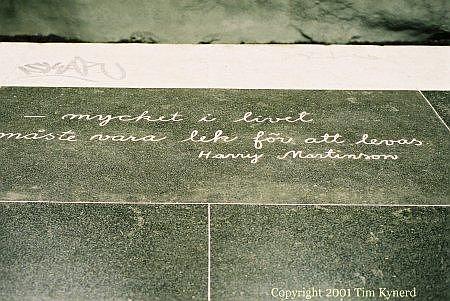 — mycket i livet
måste vara lek för att levas
Harry Martinson
Copyright 2001 Tim Kynerd